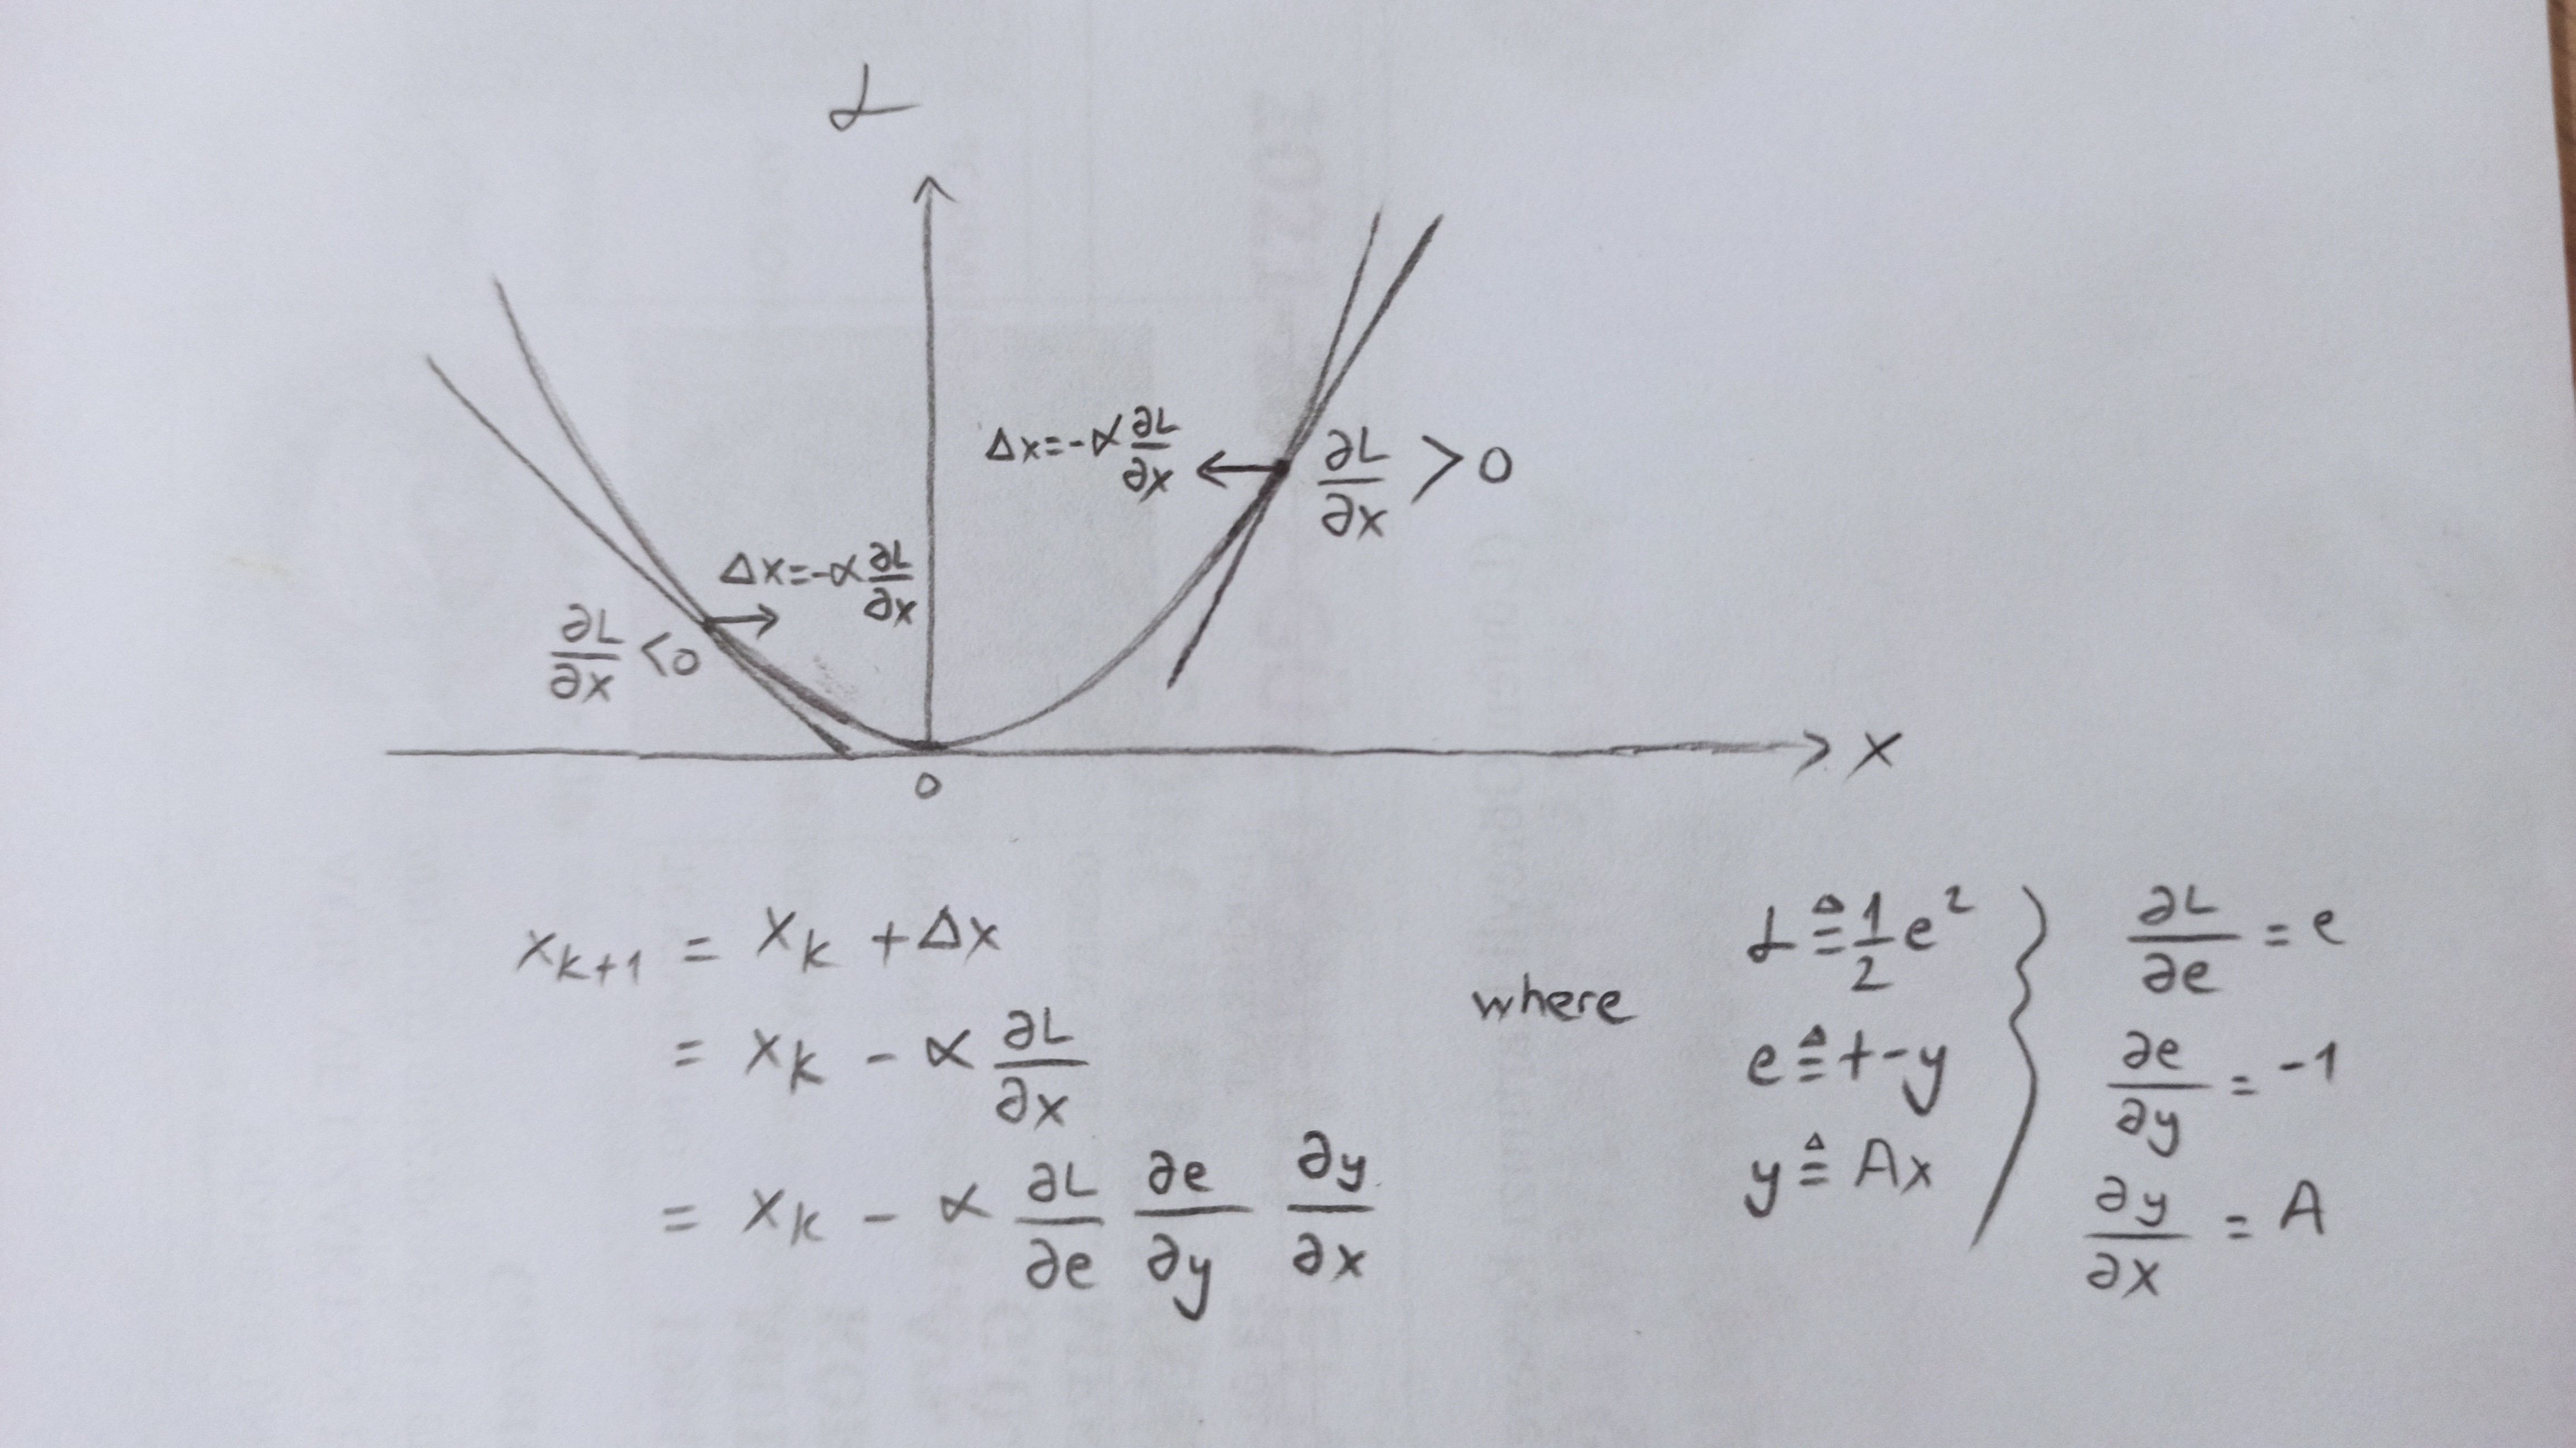 ℒ
Δx=-α ∂L/∂x
∂L/∂x > 0
Δx=-α ∂L/∂x
∂L/∂x <0
x
0
x_{k+1} = x_k + Δx
= x_k - α ∂L/∂x
= x_k - α ∂L/∂e ∂e/∂y ∂y/∂x
where
ℒ ≜ 1/2 e²
e ≜ t-y
y ≜ Ax
∂L/∂e = e
∂e/∂y = -1
∂y/∂x = A